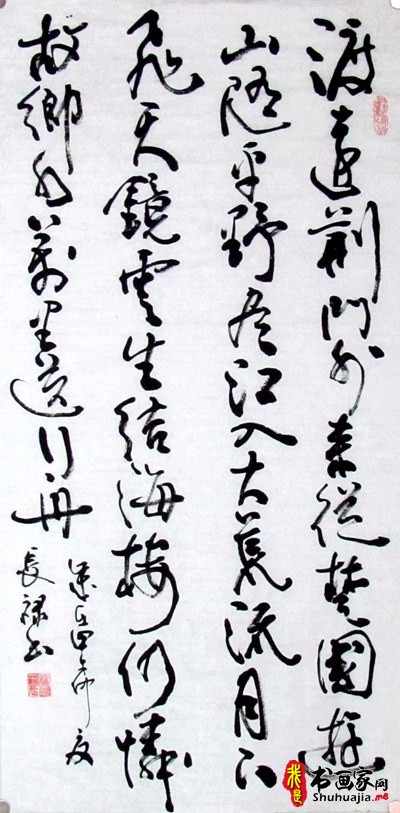 渡遠荊門外來從楚國遊
山隨平野尽江入大荒流月下
飛天鏡雲生結海樓仍憐
故鄉水萬里送行舟
長祿书
我是书画家网
Shuhuajia.me